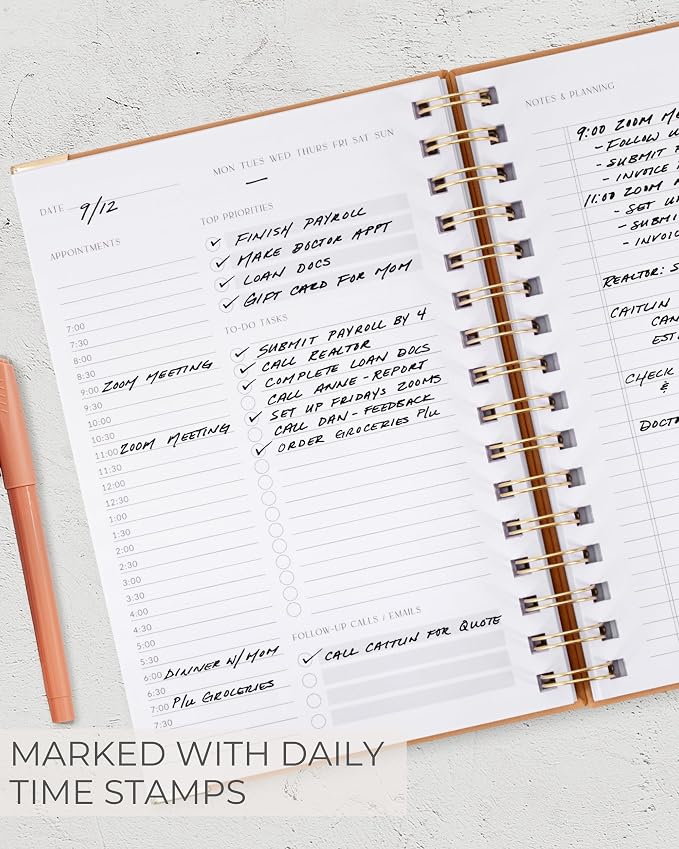 DATE 9/12
MON TUES WED THURS FRI SAT SUN
APPOINTMENTS
7:00
7:30
8:00
8:30
9:00 ZOOM MEETING
9:30
10:00
10:30
11:00 ZOOM MEETING
11:30
12:00
12:30
1:00
1:30
2:00
2:30
3:00
3:30
4:00
4:30
5:00
5:30
6:00 DINNER W/ MOM
6:30
7:00 P/U GROCERIES
7:30
TOP PRIORITIES
FINISH PAYROLL
MAKE DOCTOR APPT
LOAN DOCS
GIFT CARD FOR MOM
TO-DO TASKS
SUBMIT PAYROLL BY 4
CALL REALTOR
COMPLETE LOAN DOCS
CALL ANNE - REPORT
SET UP FRIDAYS ZOOMS
CALL DAN - FEEDBACK
ORDER GROCERIES P/U
FOLLOW-UP CALLS / EMAILS
CALL CAITLIN FOR QUOTE
NOTES & PLANNING
9:00 ZOOM
- FOLLOW
- SUBMIT
- INVOICE
11:00 ZOOM
- SET
-
- INVOIC
REALTOR:
CAITLIN
CAN
EST
CHECK
&
DOCTO
MARKED WITH DAILY
TIME STAMPS